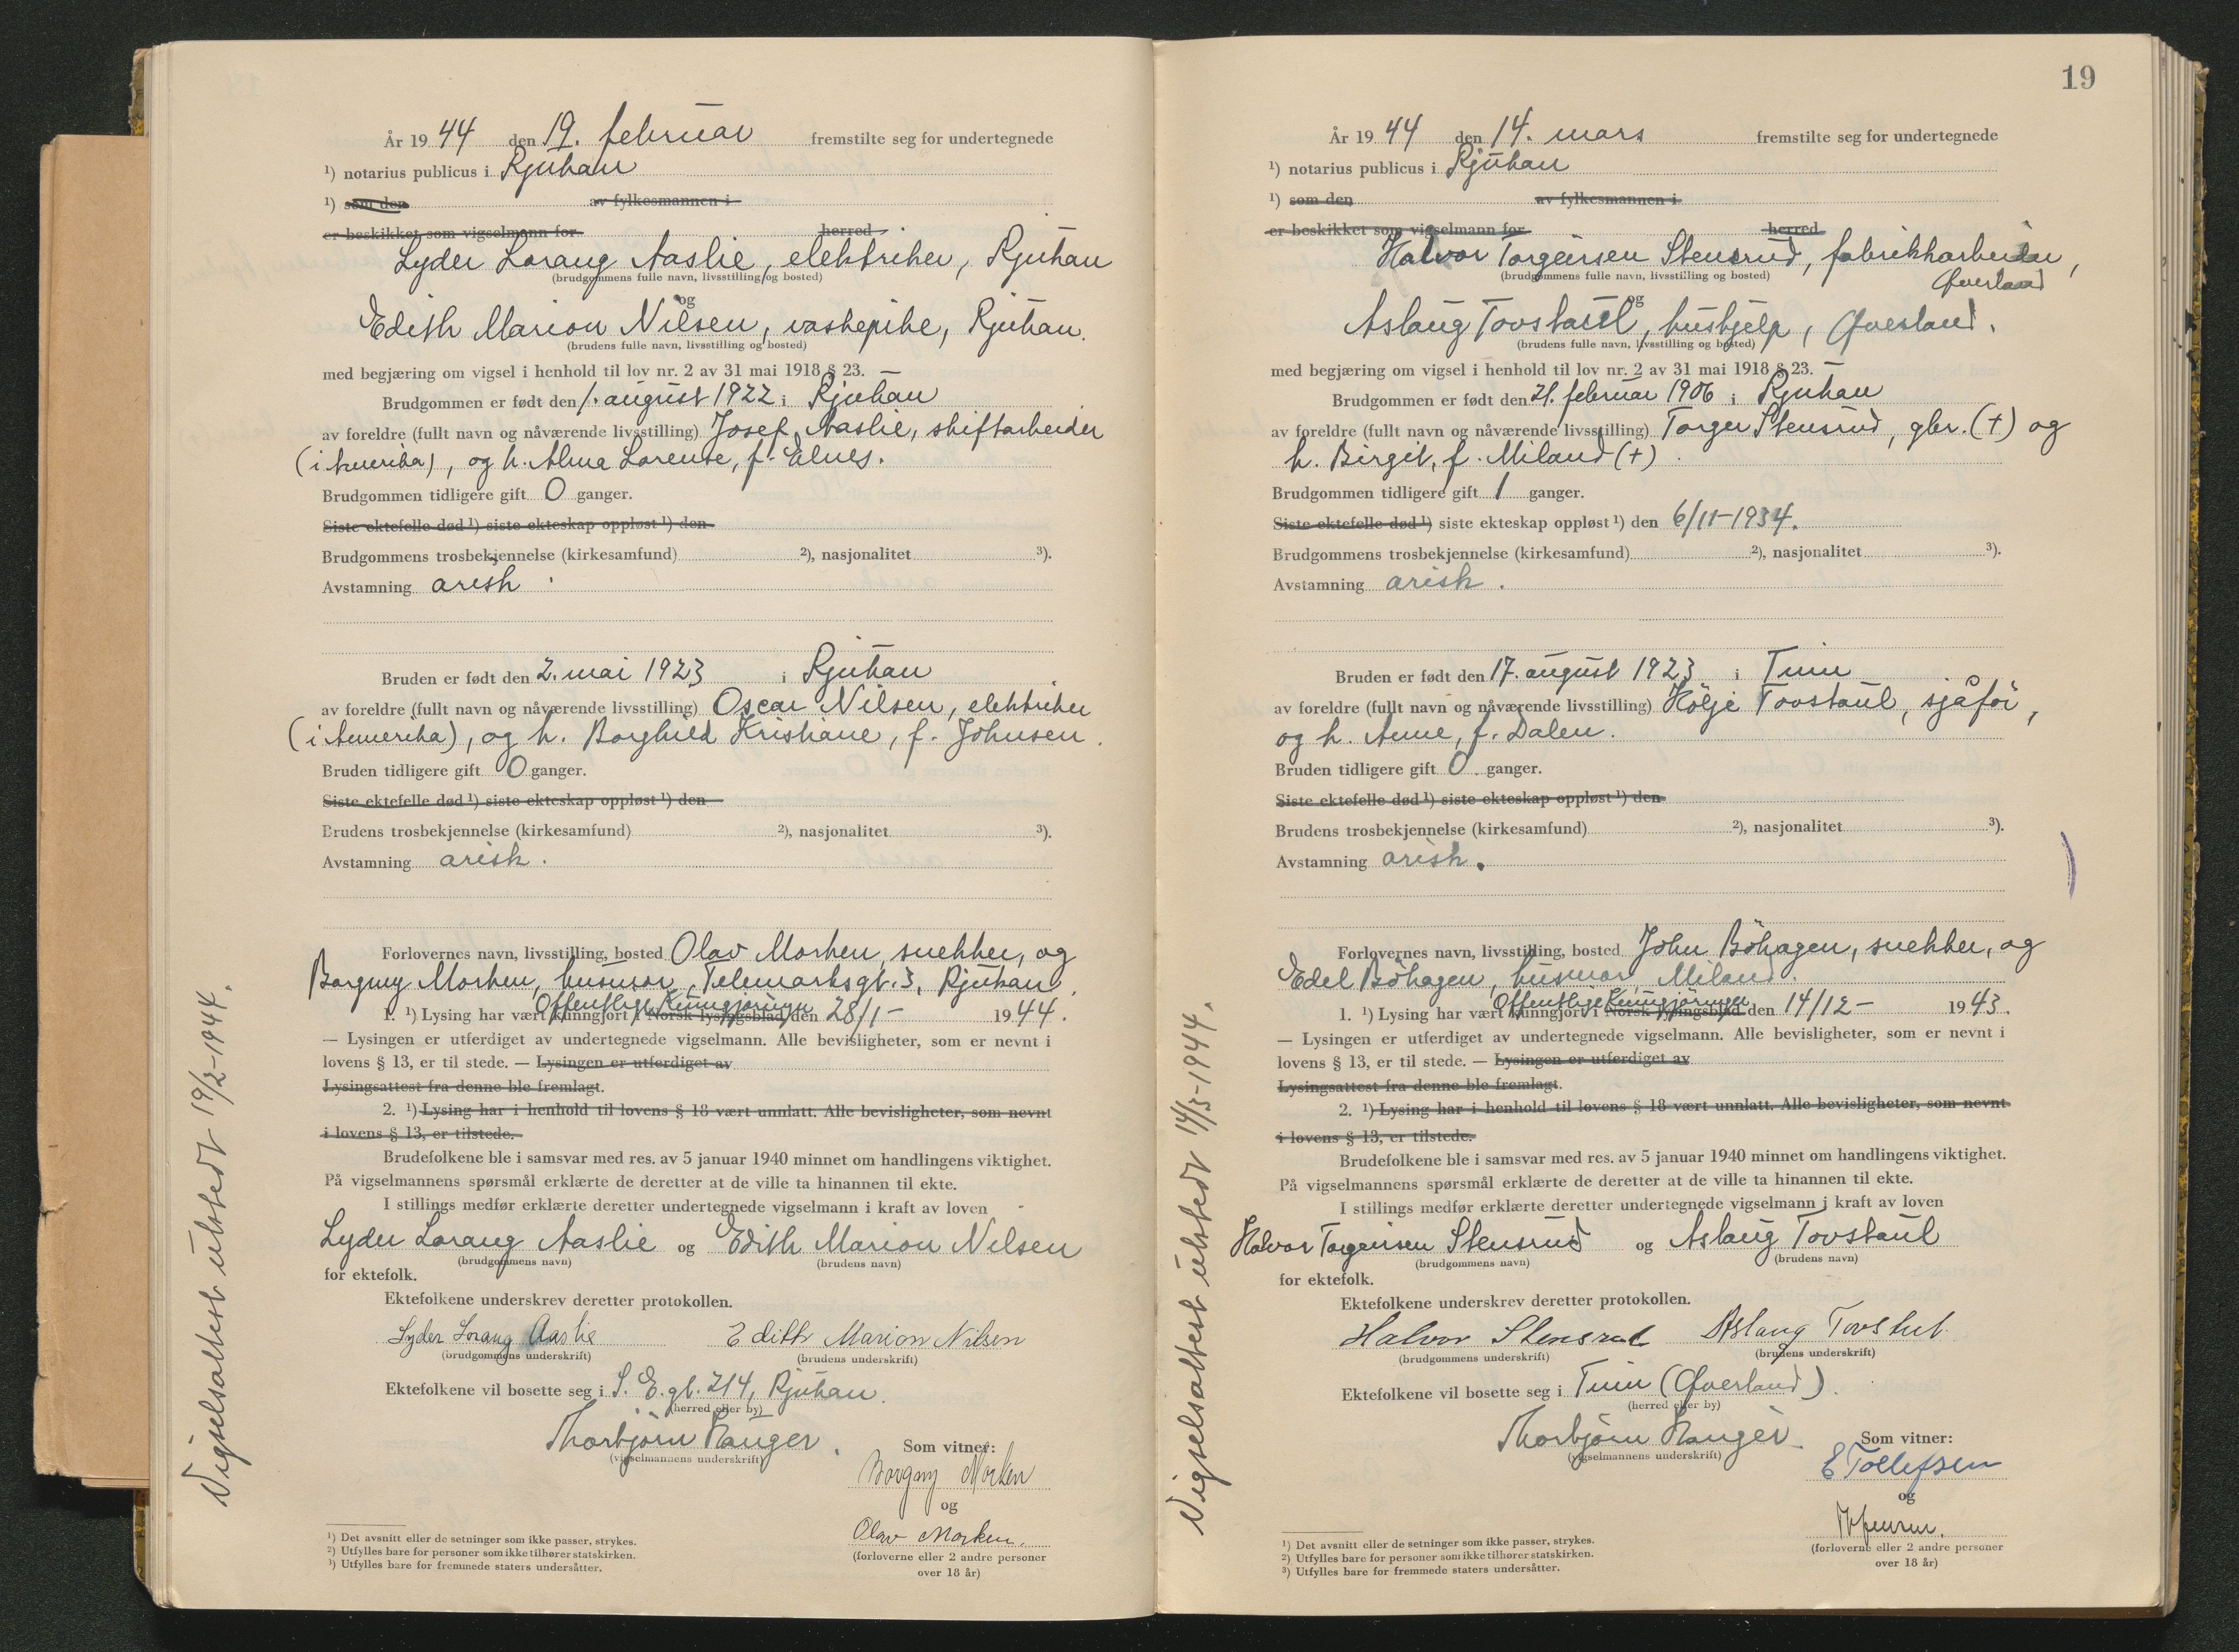 År 1944 den 19. februar fremstilte seg for undertegnede
¹) notarius publicus i Rjukan
¹) som den av fylkesmannen i
er beskikket som vigselmann for herred
Lyder Lorang Aaslie, elektriker, Rjukan
(brudgommens fulle navn, livsstilling og bosted)
og
Edith Marion Nilsen, vaskepike, Rjukan.
(brudens fulle navn, livsstilling og bosted)
med begjæring om vigsel i henhold til lov nr. 2 av 31 mai 1918 § 23.
Brudgommen er født den 1. august 1922 i Rjukan
av foreldre (fullt navn og nåværende livsstilling) Josef Aaslie, skiftarbeider
(i Amerika), og h. Alma Lorense, f. Elnes.
Brudgommen tidligere gift 0 ganger.
Siste ektefelle død ¹) siste ekteskap oppløst ¹) den
Brudgommens trosbekjennelse (kirkesamfund) ²), nasjonalitet ³).
Avstamning arisk.
Bruden er født den 2. mai 1923 i Rjukan
av foreldre (fullt navn og nåværende livsstilling) Oscar Nilsen, elektriker
(i Amerika), og h. Borghild Kristiane, f. Johnsen.
Bruden tidligere gift 0 ganger.
Siste ektefelle død ¹) siste ekteskap oppløst ¹) den
Brudens trosbekjennelse (kirkesamfund) ²), nasjonalitet ³).
Avstamning arisk.
Forlovernes navn, livsstilling, bosted Olav Morken, snekker, og
Borgny Morken, husmor, Telemarksgt. 3, Rjukan.
Offentlige Kunngjøringer
1. ¹) Lysing har vært kunngjort i Norsk lysingsblad den 28/1- 1944.
— Lysingen er utferdiget av undertegnede vigselmann. Alle bevisligheter, som er nevnt i
lovens § 13, er til stede. — Lysingen er utferdiget av
Lysingsattest fra denne ble fremlagt.
2. ¹) Lysing har i henhold til lovens § 18 vært unnlatt. Alle bevisligheter, som nevnt
i lovens § 13, er tilstede.
Brudefolkene ble i samsvar med res. av 5 januar 1940 minnet om handlingens viktighet.
På vigselmannens spørsmål erklærte de deretter at de ville ta hinannen til ekte.
I stillings medfør erklærte deretter undertegnede vigselmann i kraft av loven
Lyder Lorang Aaslie og Edith Marion Nilsen
(brudgommens navn) (brudens navn)
for ektefolk.
Ektefolkene underskrev deretter protokollen.
Lyder Lorang Aaslie Edith Marion Nilsen
(brudgommens underskrift) (brudens underskrift)
Ektefolkene vil bosette seg i S. E. gt. 214, Rjukan.
(herred eller by)
Thorbjörn Hauger.
(vigselmannens underskrift)
Som vitner:
Borgny Morken
og
Olav Morken.
(forloverne eller 2 andre personer
over 18 år)
¹) Det avsnitt eller de setninger som ikke passer, strykes.
²) Utfylles bare for personer som ikke tilhører statskirken.
³) Utfylles bare for fremmede staters undersåtter.
Vigselsattest utstedt 19/2-1944.
19
År 1944 den 14. mars fremstilte seg for undertegnede
¹) notarius publicus i Rjukan
¹) som den av fylkesmannen i
er beskikket som vigselmann for herred
Halvor Torgeirsen Stensrud, fabrikkarbeider,
Øverland
(brudgommens fulle navn, livsstilling og bosted)
og
Aslaug Tovstaul, hushjelp, Øverland.
(brudens fulle navn, livsstilling og bosted)
med begjæring om vigsel i henhold til lov nr. 2 av 31 mai 1918 § 23.
Brudgommen er født den 21. februar 1906 i Rjukan
av foreldre (fullt navn og nåværende livsstilling) Torger Stensrud, gbr. (+) og
h. Birgit, f. Miland (+).
Brudgommen tidligere gift 1 ganger.
Siste ektefelle død ¹) siste ekteskap oppløst ¹) den 6/11-1934.
Brudgommens trosbekjennelse (kirkesamfund) ²), nasjonalitet ³).
Avstamning arisk.
Bruden er født den 17. august 1923 i Tinn
av foreldre (fullt navn og nåværende livsstilling) Hölje Tovstaul, sjåför,
og h. Anne, f. Dalen.
Bruden tidligere gift 0 ganger.
Siste ektefelle død ¹) siste ekteskap oppløst ¹) den
Brudens trosbekjennelse (kirkesamfund) ²), nasjonalitet ³).
Avstamning arisk.
Forlovernes navn, livsstilling, bosted John Böhagen, snekker, og
Edel Böhagen, husmor, Miland.
Offentlige Kunngjöringer
1. ¹) Lysing har vært kunngjort i Norsk lysingsblad den 14/12- 1943.
— Lysingen er utferdiget av undertegnede vigselmann. Alle bevisligheter, som er nevnt i
lovens § 13, er til stede. — Lysingen er utferdiget av
Lysingsattest fra denne ble fremlagt.
2. ¹) Lysing har i henhold til lovens § 18 vært unnlatt. Alle bevisligheter, som nevnt
i lovens § 13, er tilstede.
Brudefolkene ble i samsvar med res. av 5 januar 1940 minnet om handlingens viktighet.
På vigselmannens spørsmål erklærte de deretter at de ville ta hinannen til ekte.
I stillings medfør erklærte deretter undertegnede vigselmann i kraft av loven
Halvor Torgeirsen Stensrud og Aslaug Tovstaul
(brudgommens navn) (brudens navn)
for ektefolk.
Ektefolkene underskrev deretter protokollen.
Halvor Stensrud Aslaug Tovstul.
(brudgommens underskrift) (brudens underskrift)
Ektefolkene vil bosette seg i Tinn (Øverland).
(herred eller by)
Thorbjörn Hauger.
(vigselmannens underskrift)
Som vitner:
E Tollefsen
og
(forloverne eller 2 andre personer
over 18 år)
¹) Det avsnitt eller de setninger som ikke passer, strykes.
²) Utfylles bare for personer som ikke tilhører statskirken.
³) Utfylles bare for fremmede staters undersåtter.
Vigselsattest utstedt 14/3-1944.